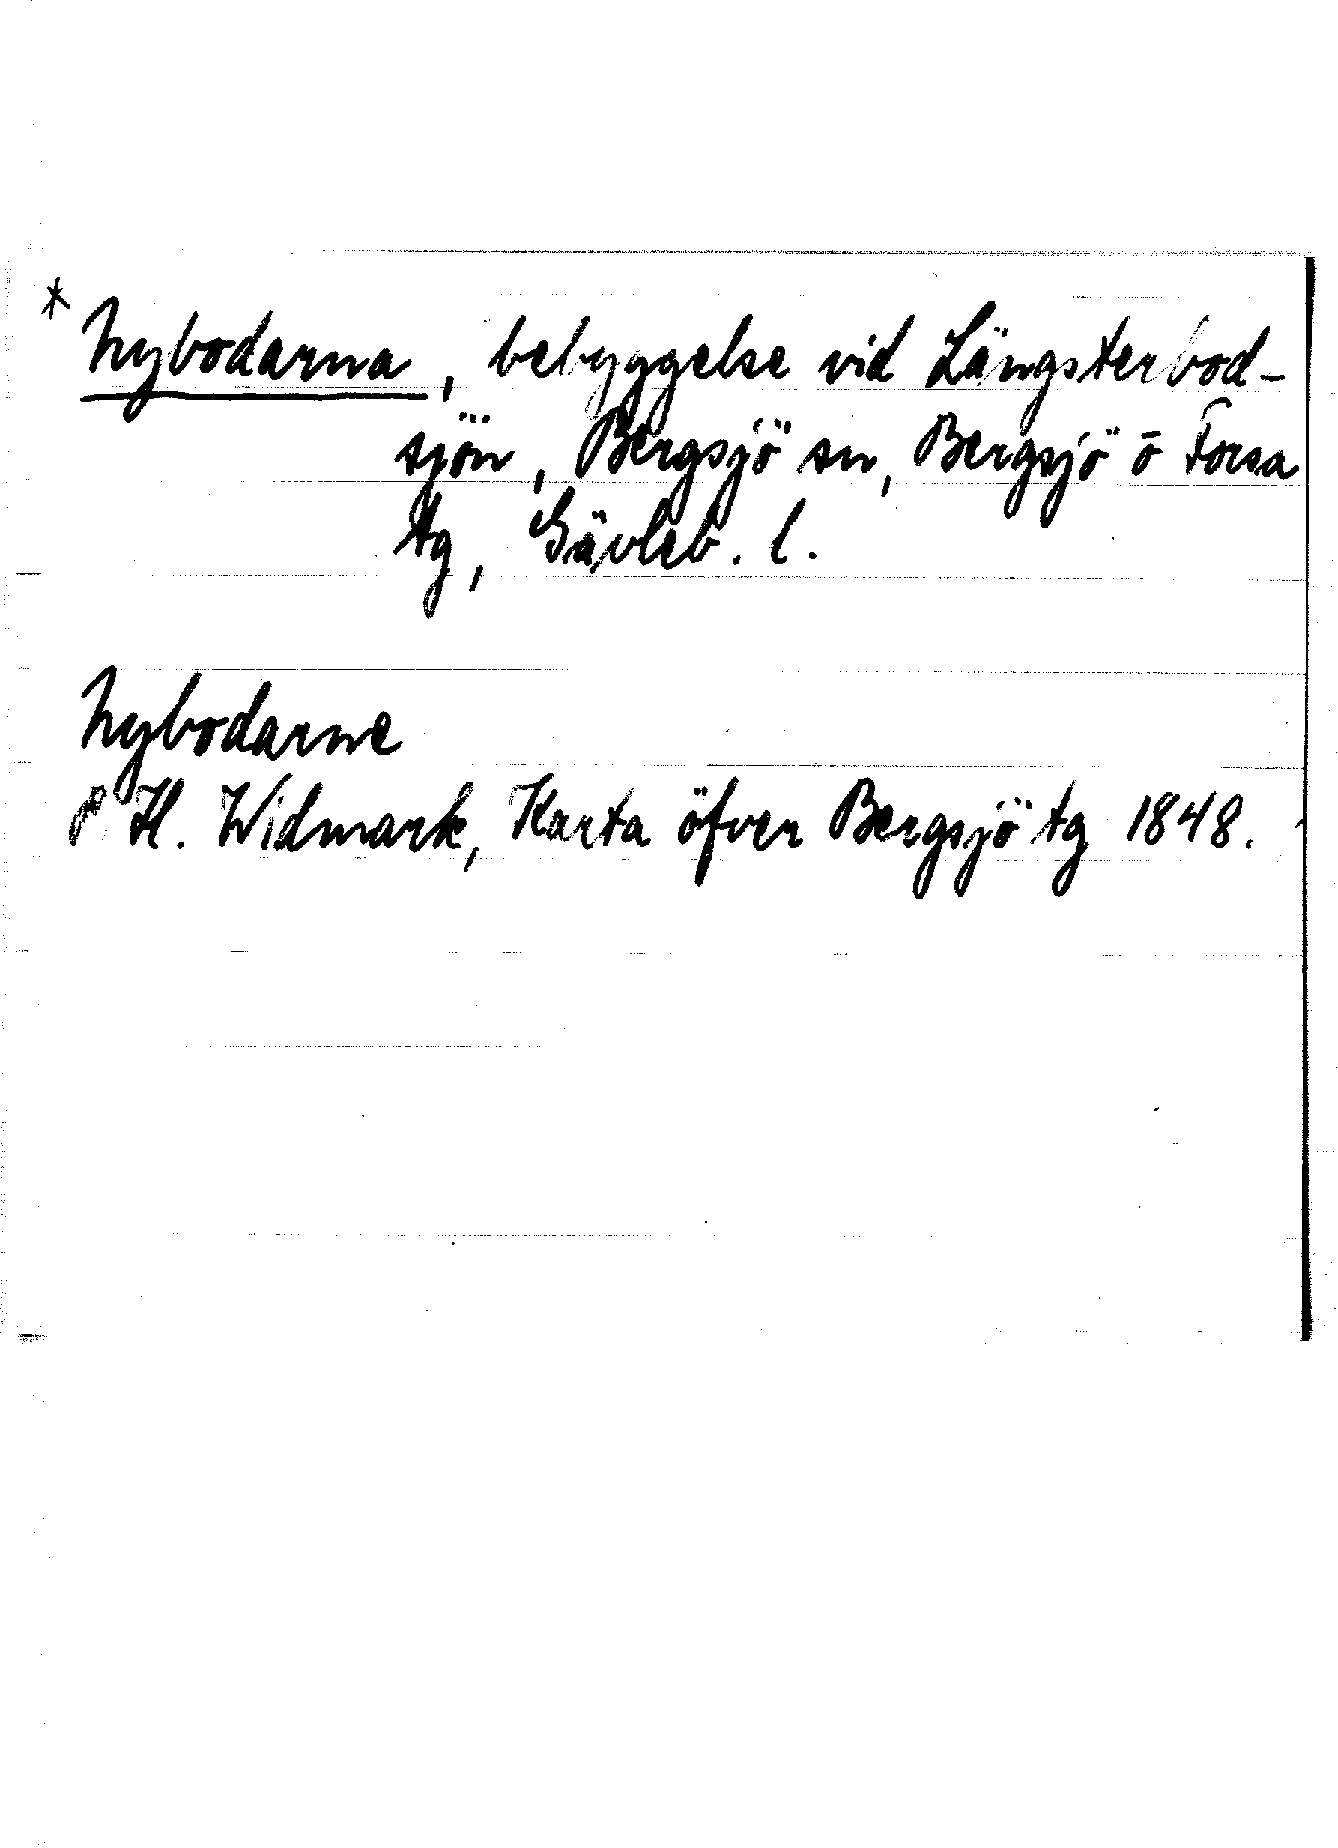 * Nybodarna, bebyggelse vid Längsterbod-
sjön, Bergsjö sn, Bergsjö o Forsa
tg, Gävleb. l.
Nybodarne
P H. Widmark, Karta öfver Bergsjö tg 1848.